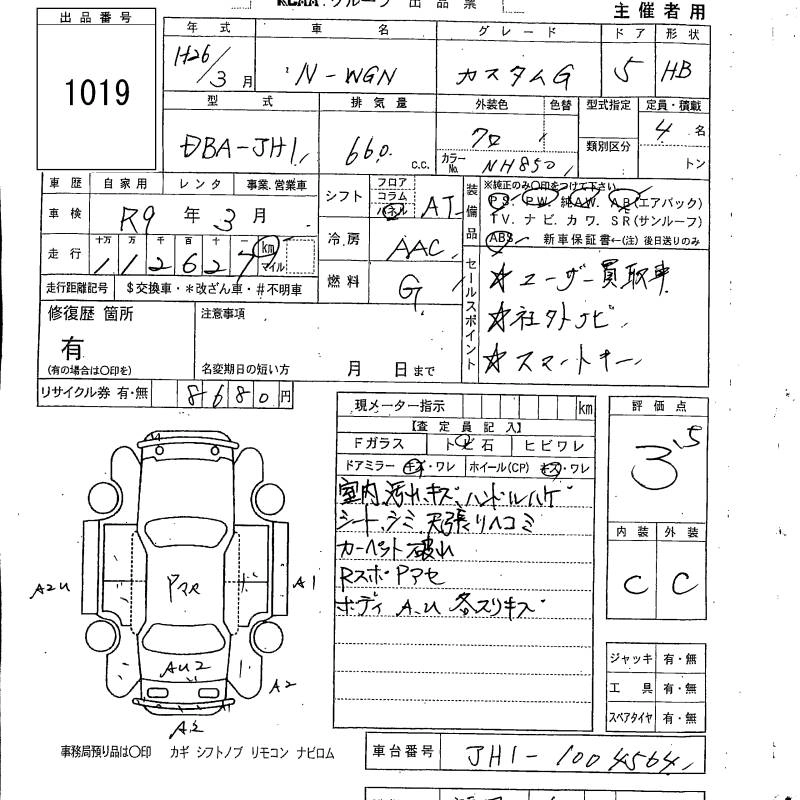 KCAA.グループ 出品票
主催者用
出品番号
1019
年式 車名 グレード ドア 形状
H26/3月 N-WGN カスタムG 5 HB
型式 排気量 外装色 色替 型式指定 定員・積載
DBA-JH1 660 c.c. クロ 類別区分 4名
カラーNo. NH850 トン
車歴 自家用 レンタ 事業.営業車
車検 R9年3月
走行 十万 万 千 百 十 一 km マイル
112627
走行距離記号 $交換車・*改ざん車・#不明車
シフト フロア コラム パネル AT
冷房 AAC
燃料 G
装備品
※純正のみ〇印をつけて下さい
P.S. P.W. 純A.W. A.B(エアバック)
T.V. ナビ.カワ. S.R(サンルーフ)
ABS 新車保証書←(注)後日送りのみ
セールスポイント
☆ユーザー買取車
☆社外ナビ
☆スマートキー
修復歴 箇所
有
(有の場合は〇印を)
注意事項
名変期日の短い方 月 日まで
リサイクル券 有・無 8680円
現メーター指示 km
【査定員記入】
Fガラス トビ石 ヒビワレ
ドアミラー キズ・ワレ ホイール(CP) キズ・ワレ
室内汚れ、キズ、ハンドルハゲ
シート、シミ 天張りヘコミ
カーペット破れ
Rスポ Pアセ
ボディ A.U 各スリキズ
評価点
3.5
内装 外装
C C
ジャッキ 有・無
工具 有・無
スペアタイヤ 有・無
A2U
Pアセ
A1
AU2
A2
A2
事務局預り品は〇印 カギ シフトノブ リモコン ナビロム
車台番号 JH1-1004564